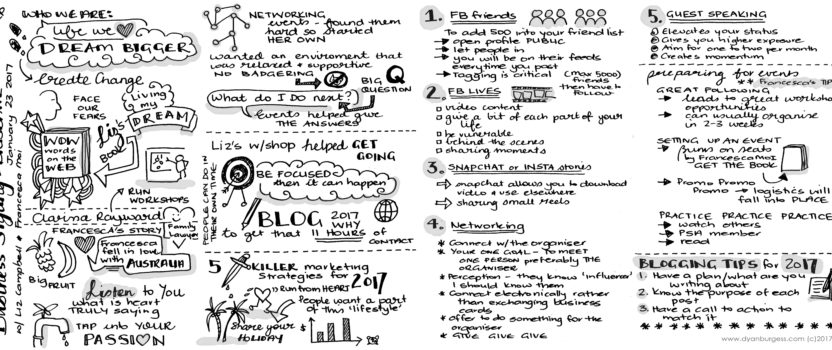 Business
w/ Liz Campbell + Francesca Moi
January 23 2017
WHO WE ARE:
We
DREAM BIGGER
Create Change
FACE
OUR
FEARS
living
in my
DREAM
Liz's
BOOK
WOW
words
on the
WEB
RUN
WORKSHOPS
Clarina Rayward
FRANCESCA'S STORY
Family
Lawyer
Francesca
fell in love
with AUSTRALIA
Big FRUIT
Listen to You
what is heart
TRULY saying
TAP into YOUR
PASSION
NETWORKING
events - found them
hard so started
HER OWN
wanted an enviroment that
was relaxed + supportive
NO BADGERING
BIG Q
QUESTION
What do I DO next?
Events helped give
THE ANSWERS
Liz's w/shop helped GET
GOING
PEOPLE CAN DO IN
THEIR OWN TIME
BE FOCUSED
then it can happen
BLOG 2017
WHY
to get that 11 HOURS of
CONTACT
5 KILLER marketing
Strategies for 2017
run from HEART
People want a part
of this 'lifestyle'
Share your
HOLIDAY
$
1. FB friends
To add 500 into your friend list
open profile PUBLIC
let people in
you will be on their feeds
everytime you post
Tagging is critical (Max 5000)
friends
then have to
FOLLOW
2. FB LIVES
video content
give a bit of each part of your
life
be vunerable
behind the scenes
sharing moments
3. SNAPCHAT or INSTA stories
snapchat allows you to download
video + use elsewhere
sharing small reels
4. Networking
* Connect w/ the organiser
* YOUR ONE GOAL - TO MEET
ONE PERSON preferably THE
ORGANISER
* Perception - they know 'influencer'
I should know them
* Connect electronically rather
than exchanging business
cards
* offer to do something for the
organiser
* GIVE GIVE GIVE
5. GUEST SPEAKING
Elevates your status
Gives you higher exposure
Aim for one to two per month
Creates momentum
preparing for events
** Francesca's TIP
GREAT FOLLOWING
leads to great workshop
opportunities
can usually organise
in 2-3 weeks
SETTING UP AN EVENT
Bums on Seats
by Francesca Moi
GET THE BOOK
Promo Promo
Promo → logistics will
fall into PLACE
PRACTICE PRACTICE PRACTICE
watch others
PSA member
read
BLOGGING TIPS for 2017
1. Have a plan/what are you
writing about
2. Know the purpose of each
post
3. Have a call to action to
match it
www.dyanburgess.com (c)2017